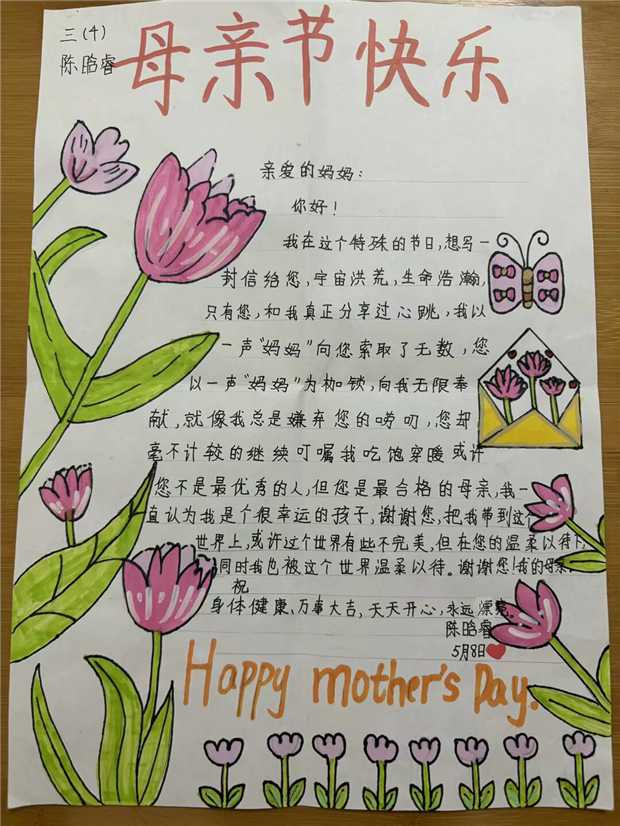 三(4)
陈晗睿
母亲节快乐
亲爱的妈妈:
你好!
我在这个特殊的节日,想写一
封信给您,宇宙洪荒,生命浩瀚,
只有您,和我真正分享过心跳,我以
一声“妈妈”向您索取了无数,您
以一声“妈妈”为枷锁,向我无限奉
献,就像我总是嫌弃您的唠叨,您却
毫不计较的继续叮嘱我吃饱穿暖或许
您不是最优秀的人,但您是最合格的母亲,我一
直认为我是个很幸运的孩子,谢谢您,把我带到这个
世界上,或许这个世界有些不完美,但在您的温柔以待下,
同时我也被这个世界温柔以待。谢谢您!我的母亲
祝
身体健康、万事大吉,天天开心,永远漂亮
陈晗睿
5月8日
Happy mother's Day.